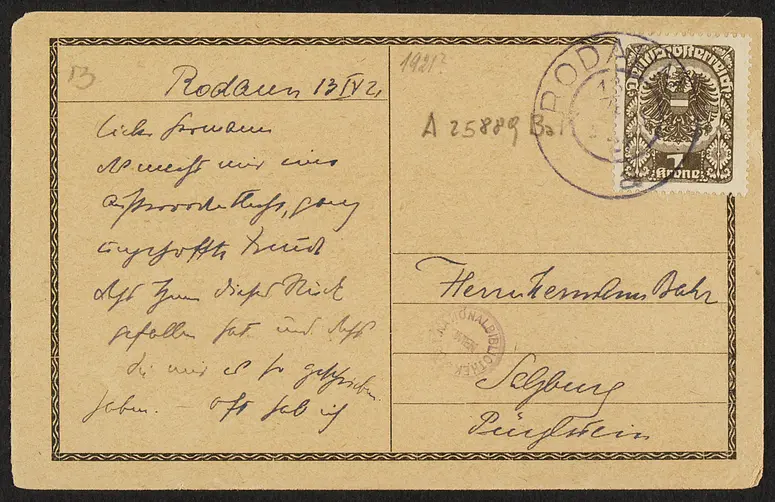 13
Rodaun 13 IV 21
lieber Hermann
es macht mir eine
außerordentliche, ganz
ungehoffte Freude
daß Ihnen dieses Stück
gefallen hat. und daß
Sie mir es so geschrieben
haben. – oft hab ich
1921?
A 25889 Ba M
RODAUN
Deutschösterreich
1
Krone
Herrn Hermann Bahr
Salzburg
Bürglstein
NATIONALBIBLIOTHEK
WIEN